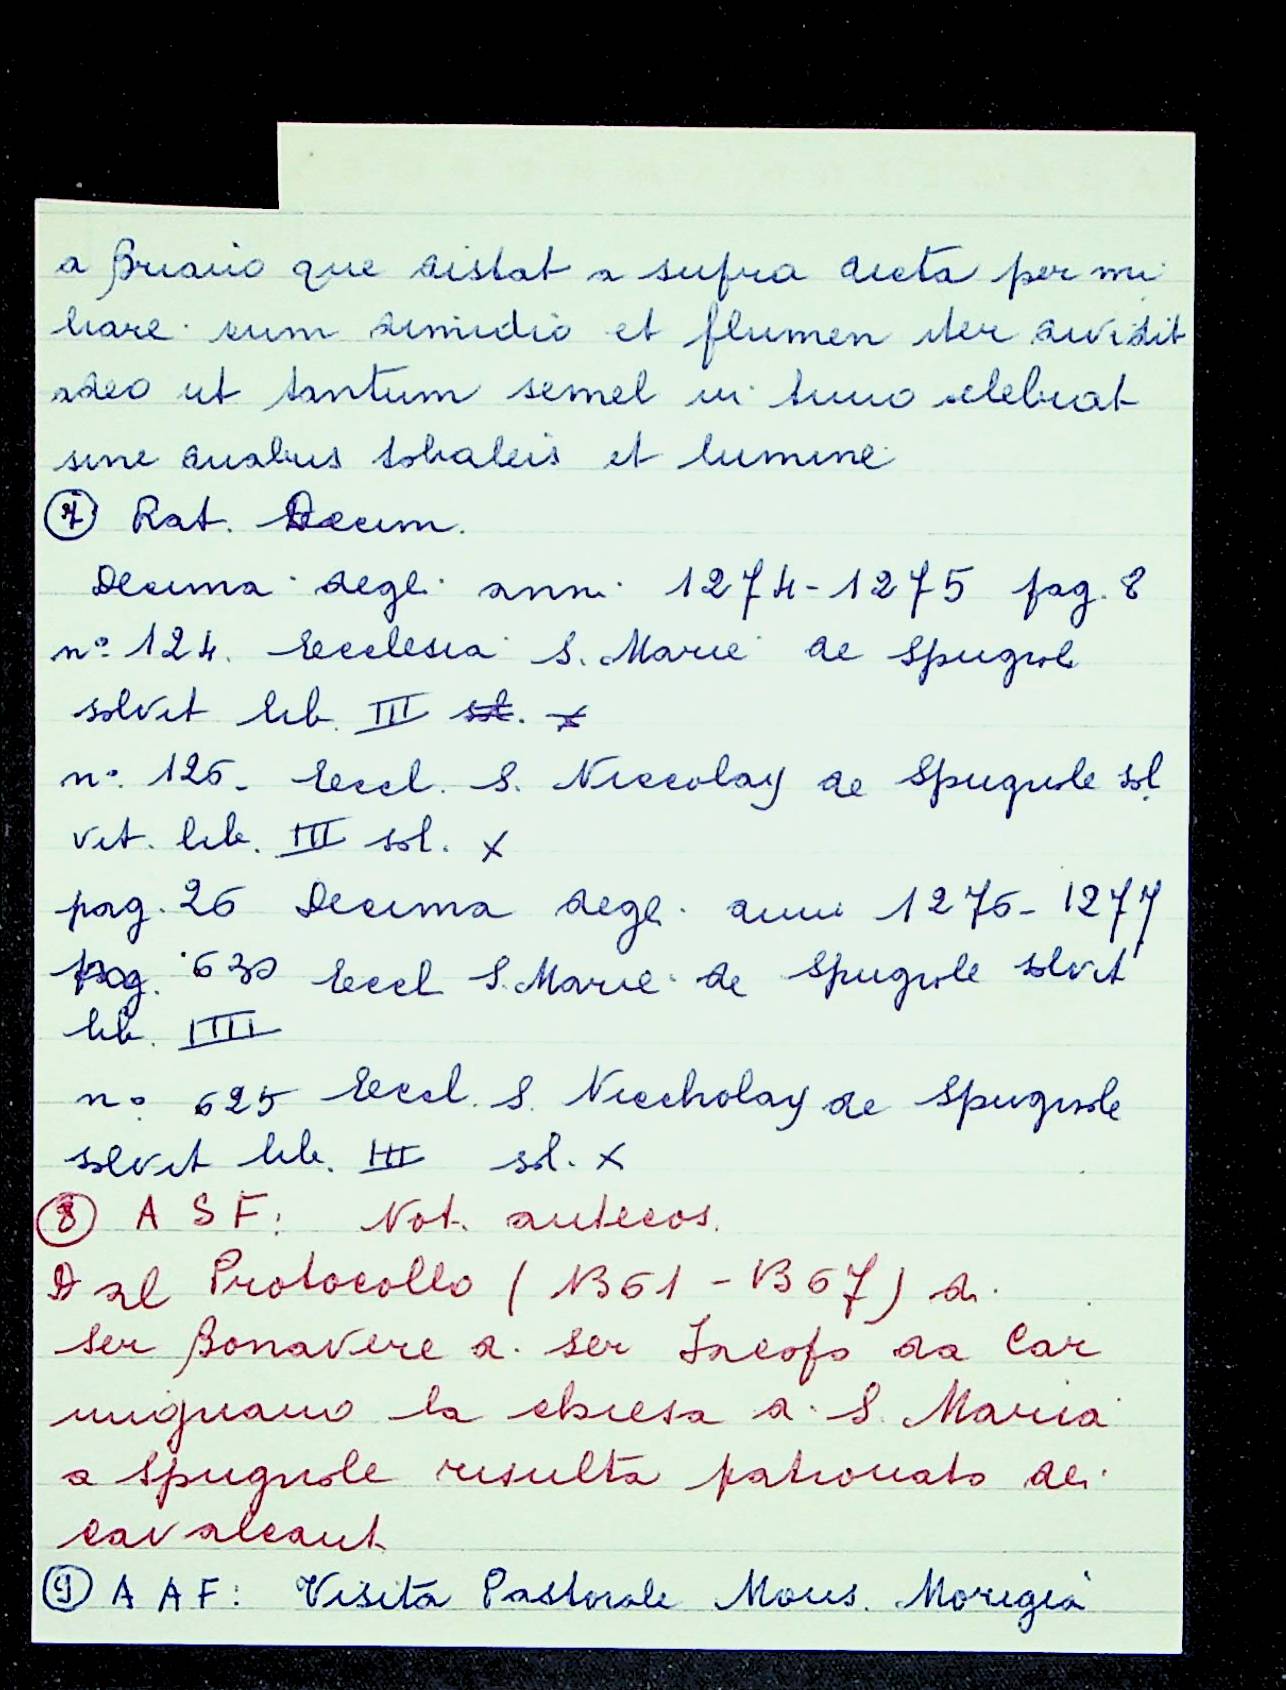 a Briano que distat a supra dicta per mi
liare cum dimidio et flumen iter dividit
adeo ut tantum semel in anno celebrat
sine duabus tobaleis et lumine
⑦ Rat. Decim.
Decima degli anni 1274-1275 pag. 8
n° 124. Ecclesia S. Marie de Spugnole
solvit lib. III sol. x
n° 126. Eccl. S. Niccolay de Spugnole sol
vit. lib. III sol. x
pag. 26 Decima degli anni 1276-1277
pag. 630 Eccl S. Marie de Spugnole solvit
lib. IIII
n° 625 Eccl. S. Niccholay de Spugnole
solvit lib. III sol. x
⑧ A S F: Not. antecos.
Dal Protocollo (B61-B67) di
ser Bonavere di ser Iacopo da Car
mignano la chiesa di S. Maria
a Spugnole risulta patronato dei
Cavalcanti
⑨ A A F: Visita Pastorale Mons. Morigia